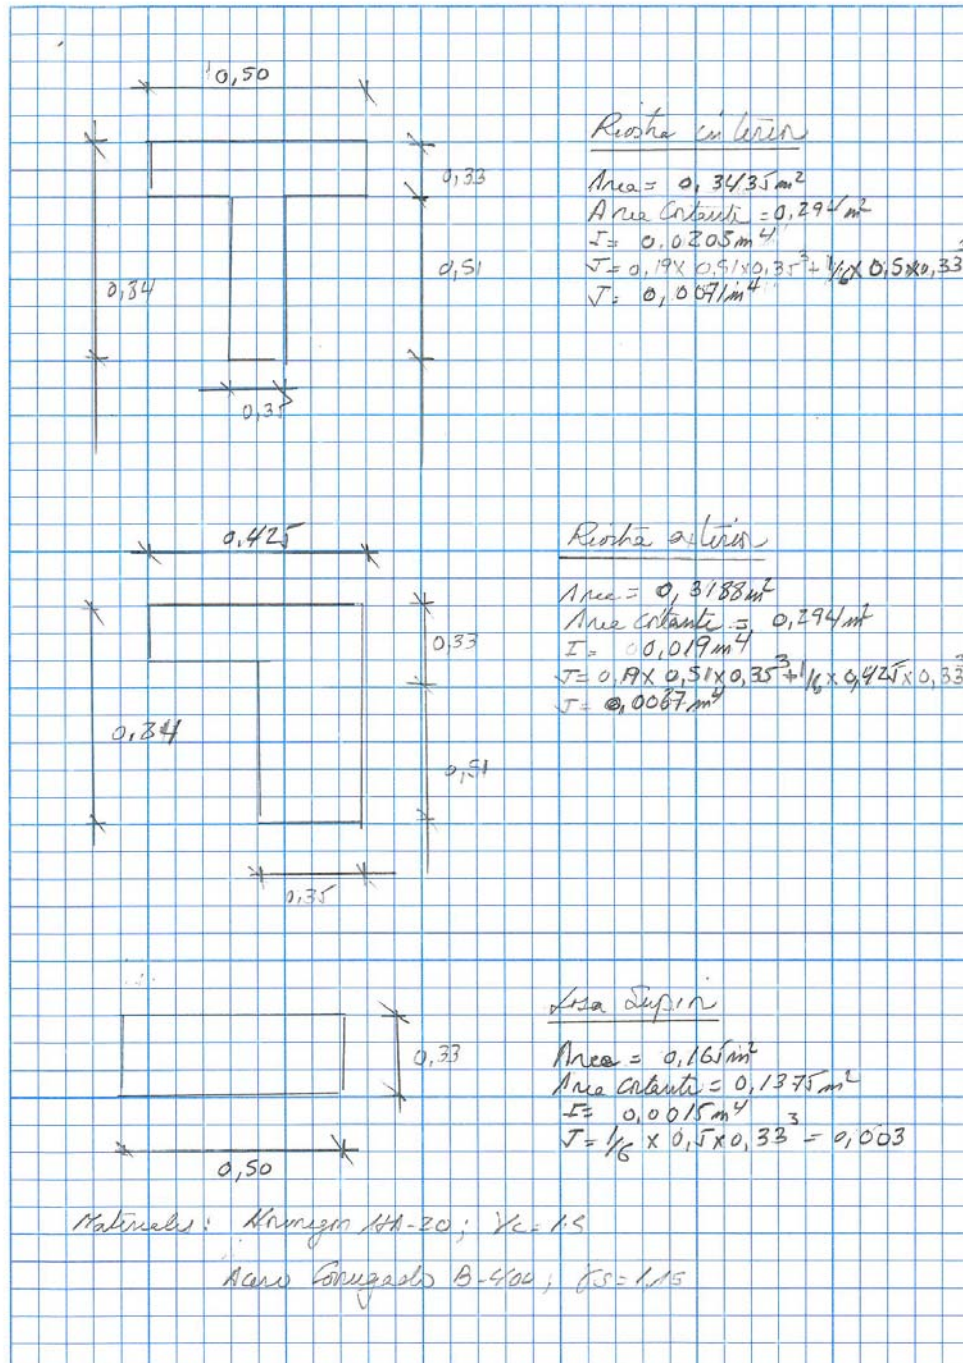 0,50
0,33
0,51
0,84
0,35
Riostra interior
Area = 0,3435m²
Area Cortante = 0,294m²
I = 0,0205m⁴
J = 0,19 x 0,51 x 0,35³ + 1/6 x 0,5 x 0,33³
J = 0,0071m⁴
0,425
0,33
0,84
0,51
0,35
Riostra exterior
Area = 0,3188m²
Area cortante = 0,294m²
I = 0,019m⁴
J = 0,19 x 0,51 x 0,35³ + 1/6 x 0,425 x 0,33³
J = 0,0067m⁴
0,33
0,50
Losa Super
Area = 0,165m²
Area cortante = 0,1375m²
I = 0,0015m⁴
J = 1/6 x 0,5 x 0,33³ = 0,003
Materiales: Hormigon HA-20; γc = 1.5
Acero Corrugado B-400; γs = 1.15